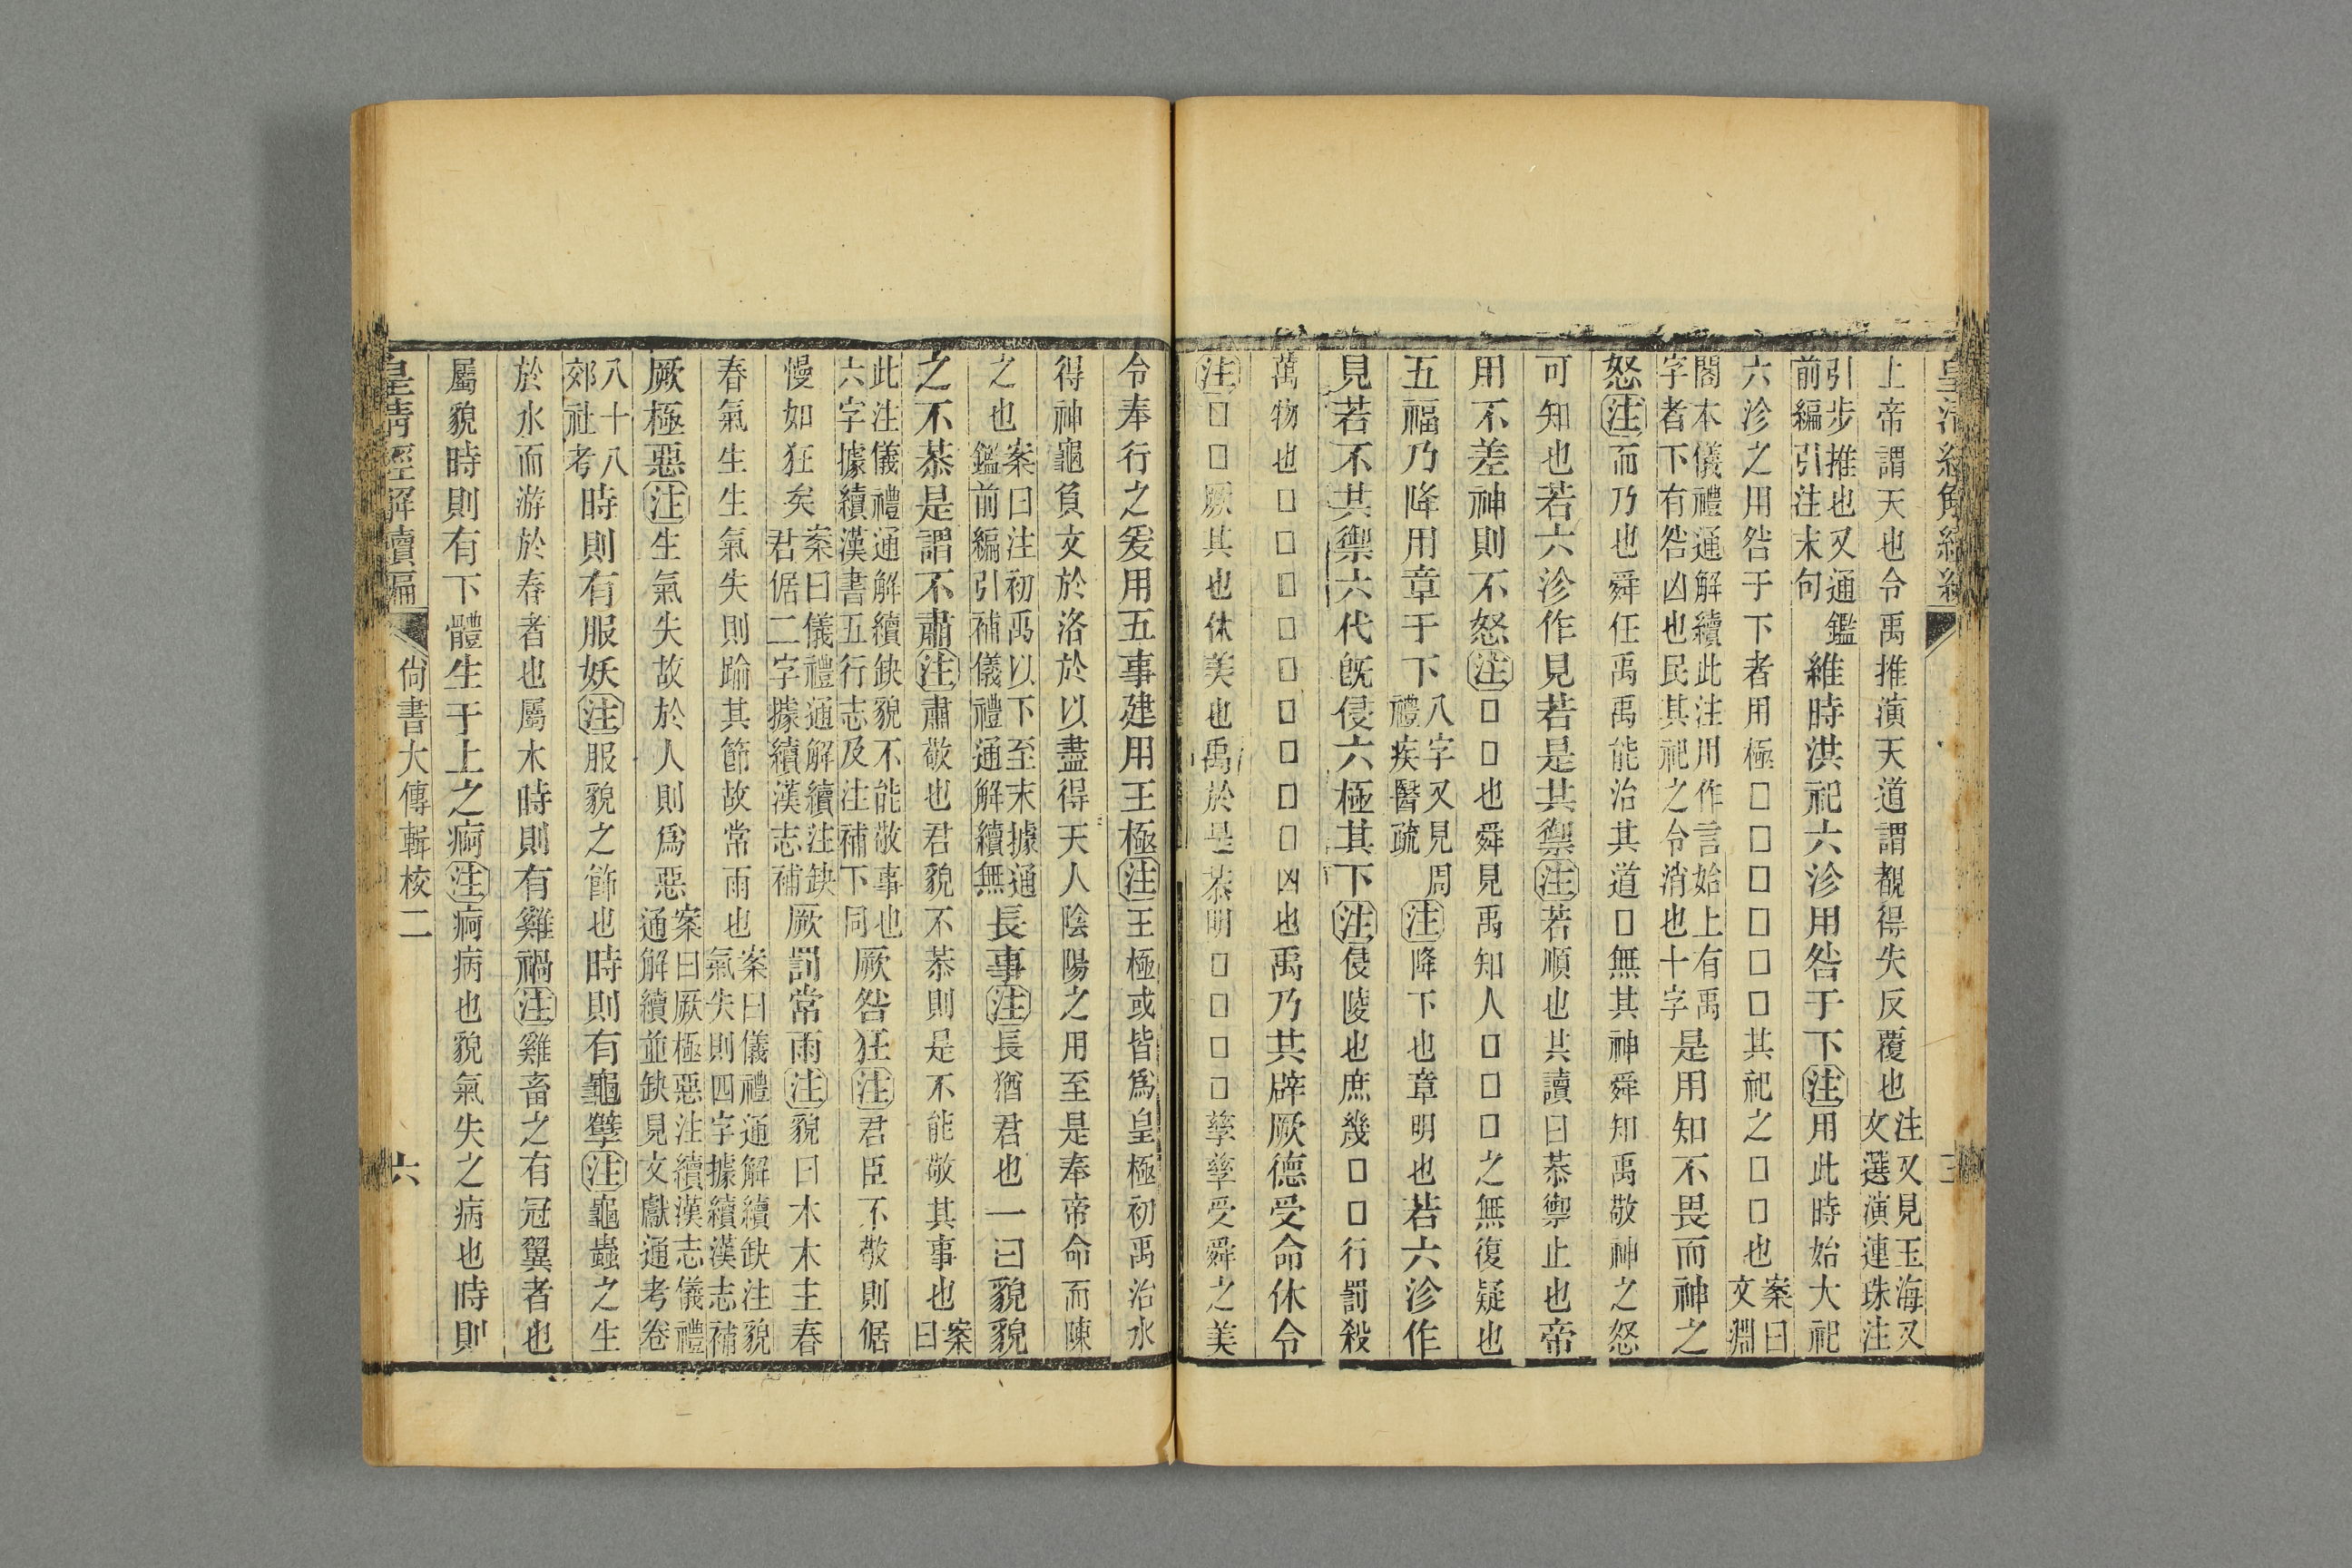 上帝謂天也令禹推演天道謂觀得失反覆也注又見玉海又文選演連珠注
引步推也又通鑑前編引注末句維時洪祀六沴用咎于下注用此時始大祀
六沴之用咎于下者用極□□□□□□其祀之□□也案曰文淵
閣本儀禮通解續此注用作言始上有禹字者下有咎凶也民其祀之令消也十字是用知不畏而神之
怒注而乃也舜任禹禹能治其道□無其神舜知禹敬神之怒
可知也若六沴作見若是共禦注若順也共讀曰恭禦止也帝
用不差神則不怒注□□也舜見禹知人□□□之無復疑也
五福乃降用章于下八字又見周禮疾醫疏注降下也章明也若六沴作
見若不共禦六代旣侵六極其下注侵陵也庶幾□□行罰殺
萬物也□□□□□□□□□凶也禹乃共辟厥德受命休令
注□□厥其也休美也禹於是恭明□□□□孳孳受舜之美
令奉行之爰用五事建用王極注王極或皆爲皇極初禹治水
得神龜負文於洛於以盡得天人陰陽之用至是奉帝命而陳
之也案曰注初禹以下至末據通鑑前編引補儀禮通解續無長事注長猶君也一曰貌貌
之不恭是謂不肅注肅敬也君貌不恭則是不能敬其事也案曰
此注儀禮通解續缺貌不能敬事也六字據續漢書五行志及注補下同厥咎狂注君臣不敬則倨
慢如狂矣案曰儀禮通解續注缺君倨二字據續漢志補厥罰常雨注貌曰木木主春
春氣生生氣失則踰其節故常雨也案曰儀禮通解續缺注貌氣失則四字據續漢志補
厥極惡注生氣失故於人則爲惡案曰厥極惡注續漢志儀禮通解續並缺見文獻通考卷
八十八郊社考時則有服妖注服貌之飾也時則有龜孽注龜蟲之生
於水而游於春者也屬木時則有雞禍注雞畜之有冠翼者也
屬貌時則有下體生于上之痾注痾病也貌氣失之病也時則
皇清經解續編 尙書大傳輯校二 六